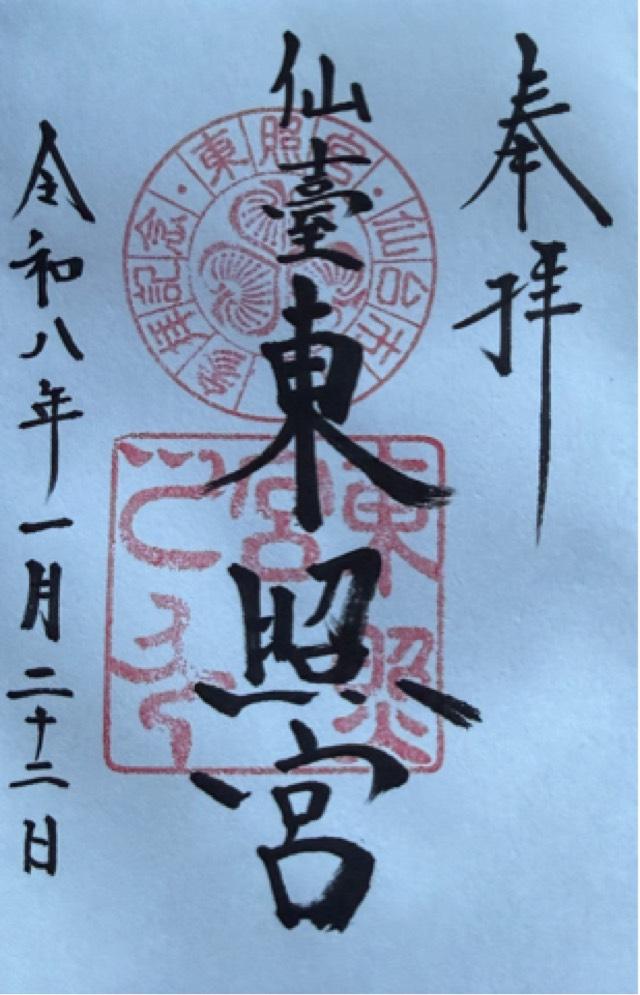 奉拝
仙臺東照宮
令和八年一月二十二日
東照宮・仙台市
参拝記念・
東照宮